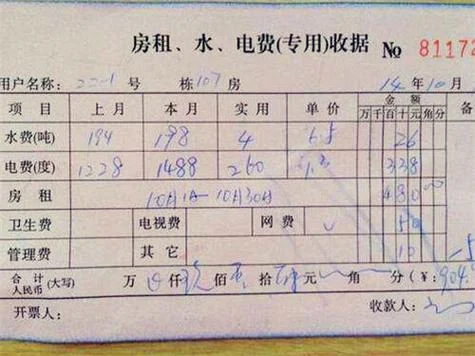 房租、水、电费(专用)收据 No 81172
用户名称: 号 栋107房 14年10月
项目 上月 本月 实用 单价 金额 备
万 千 百 十 元 角 分
水费(吨) 194 198 4 6.5 26
电费(度) 1228 1488 260 1.3 338
房租 10月1日-10月30日 480 00
卫生费 电视费 网费 50
管理费 其它 10
合计人民币(大写) 万 仟 佰 拾 元 角 分(¥: 904
开票人: 收款人: